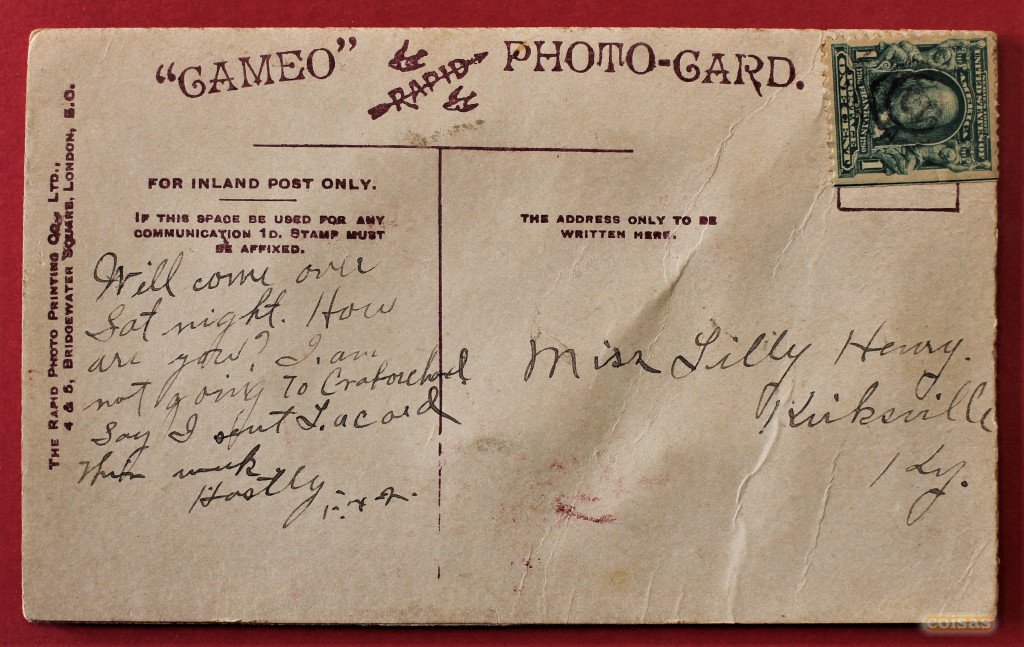 "CAMEO" RAPID PHOTO-CARD.
THE RAPID PHOTO PRINTING CO., LTD.,
4 & 5, BRIDGEWATER SQUARE, LONDON, E.C.
FOR INLAND POST ONLY.
IF THIS SPACE BE USED FOR ANY
COMMUNICATION 1D. STAMP MUST
BE AFFIXED.
THE ADDRESS ONLY TO BE
WRITTEN HERE.
Will come over
Sat night. How
are you? I am
not going To
Say I sent L. a card
This week
Hastly
Miss Lilly Henry.
Kirksville
Ky.
1 1
ONE CENT
FRANKLIN
UNITED STATES OF
AMERICA
coisas